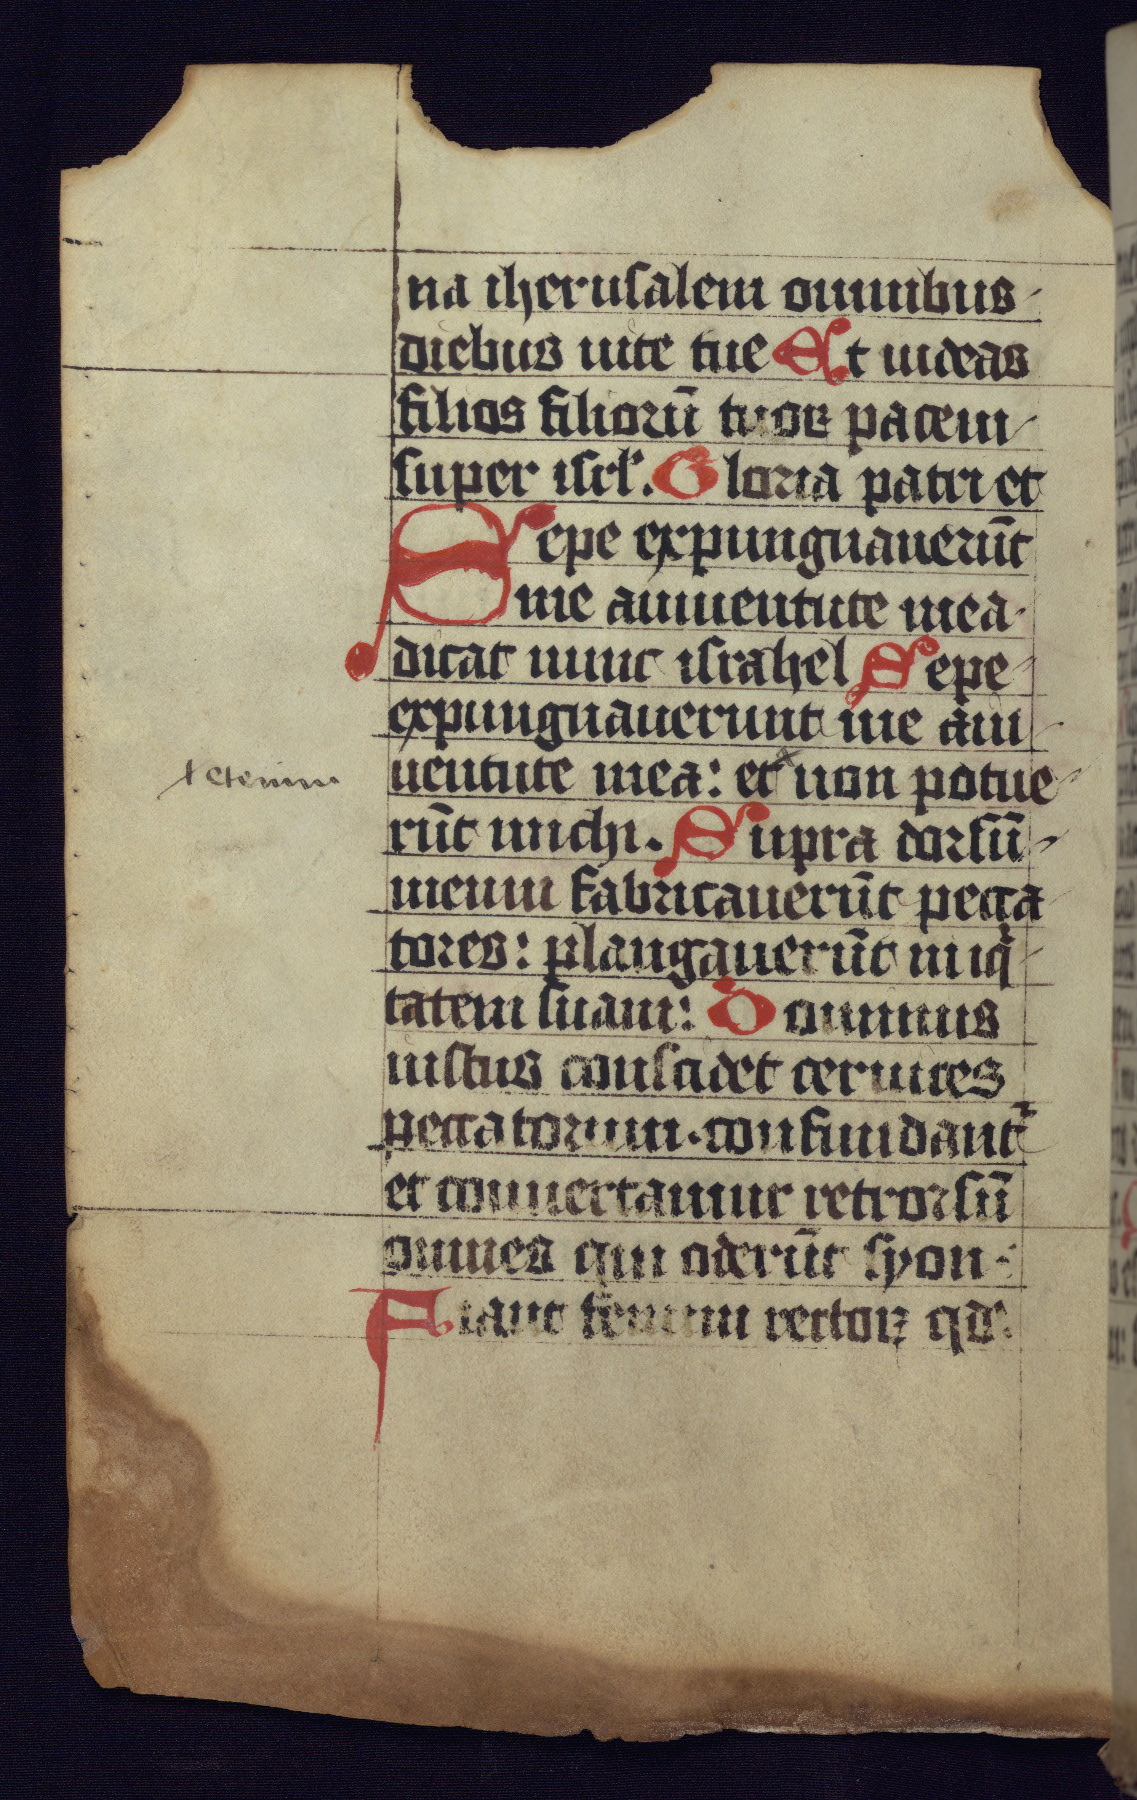 na iherusalem omnibus
diebus uite tue Et uideas
filios filiorū tuoꝝ pacem
super isrl'. Gloria patri et
Sepe expungnauerūt
me aiuuentute mea
dicat nunc israhel Sepe
expungnauerunt me aiu
uentute mea: et non potue
l etenim
rūt michi. Supra dorsū
meum fabricauerūt pecca
tores: plangauerūt iniq
tatem suam: Dominus
iustus conscidet ceruices
peccatorum. confundant
et conuertantur retrorsū
omnes qui oderūt syon
Fiant fenum tectoꝝ qd